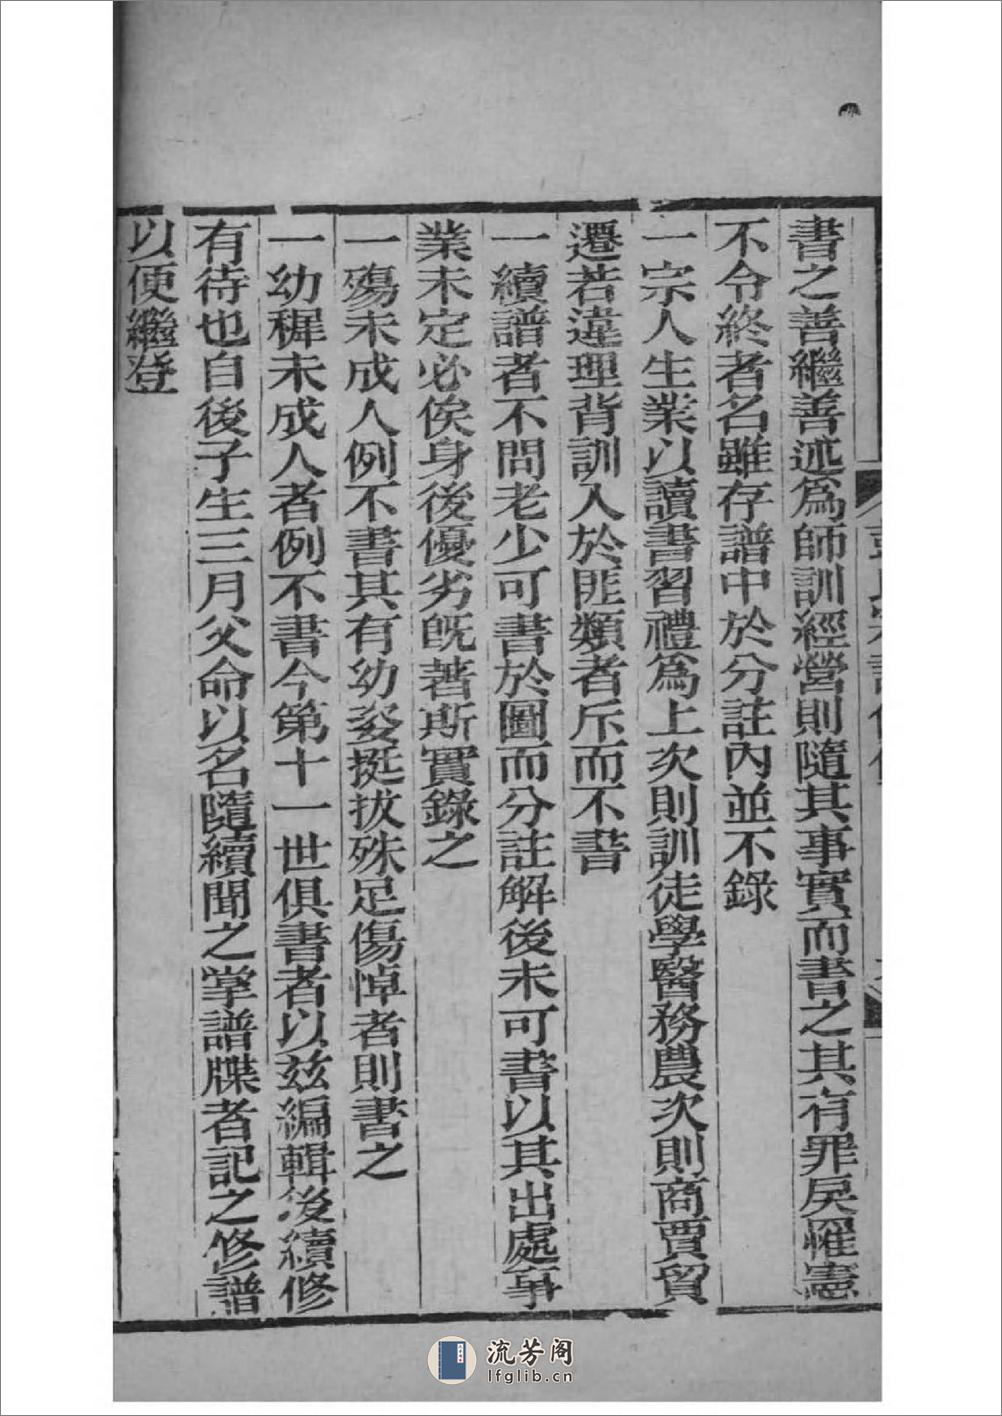 書之善繼善述爲師訓經營則隨其事實而書之其有罪戾罹憲
不令終者名雖存譜中於分註內並不錄
一宗人生業以讀書習禮爲上次則訓徒學醫務農次則商賈貿
遷若違理背訓入於匪類者斥而不書
一續譜者不問老少可書於圖而分註解後未可書以其出處事
業未定必俟身後優劣旣著斯實錄之
一殤未成人例不書其有幼姿挺拔殊足傷悼者則書之
一幼穉未成人者例不書今第十一世俱書者以兹編輯後續修
有待也自後子生三月父命以名隨續聞之掌譜牒者記之修譜
以便繼登
流芳阁
lfglib.cn